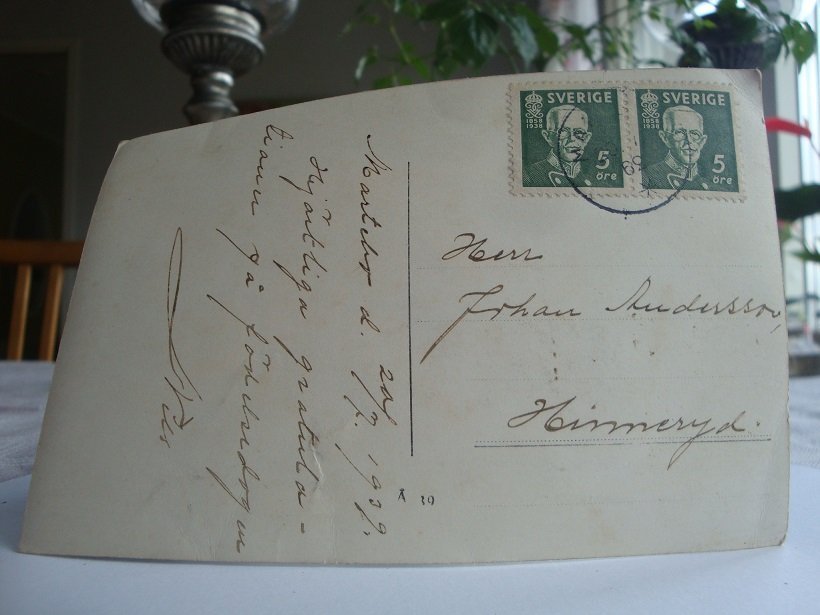 SVERIGE
1858
1938
5
öre
SVERIGE
1858
1938
5
öre
d. 20/7. 1939.
Hjärtliga gratula-
tioner på födelsedagen
Nils
Herr
Johan Andersson,
Hinneryd.
A 39